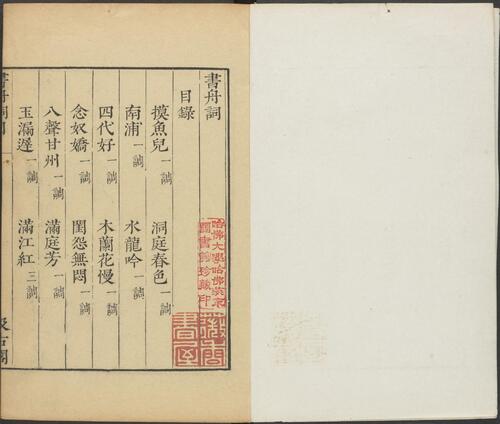 書舟詞
目錄
摸魚兒一調 洞庭春色一調
南浦一調 水龍吟一調
四代好一調 木蘭花慢一調
念奴嬌一調 閨怨無悶一調
八聲甘州一調 滿庭芳一調
玉漏遲一調 滿江紅三調
書舟詞目 一
汲古閣
哈佛大學哈佛燕京
圖書館珍藏印